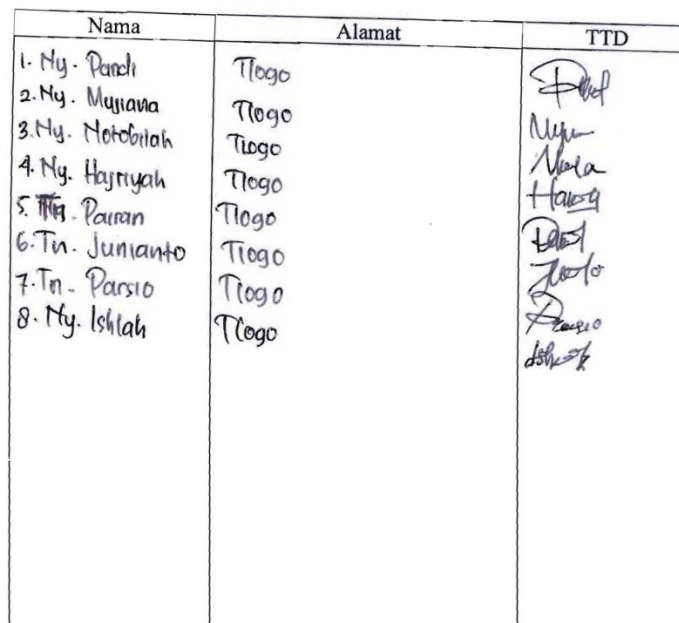 Nama Alamat TTD
1. Ny. Pardi Tlogo
2. Ny. Mujiana Tlogo
3. Ny. Notobilah Tlogo
4. Ny. Hajriyah Tlogo
5. Tn. Pairan Tlogo
6. Tn. Junianto Tlogo
7. Tn. Parsio Tlogo
8. Ny. Ishlah Tlogo